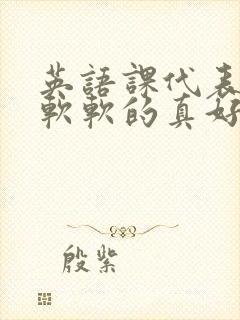 英語課代表
軟軟的真好
殷紫